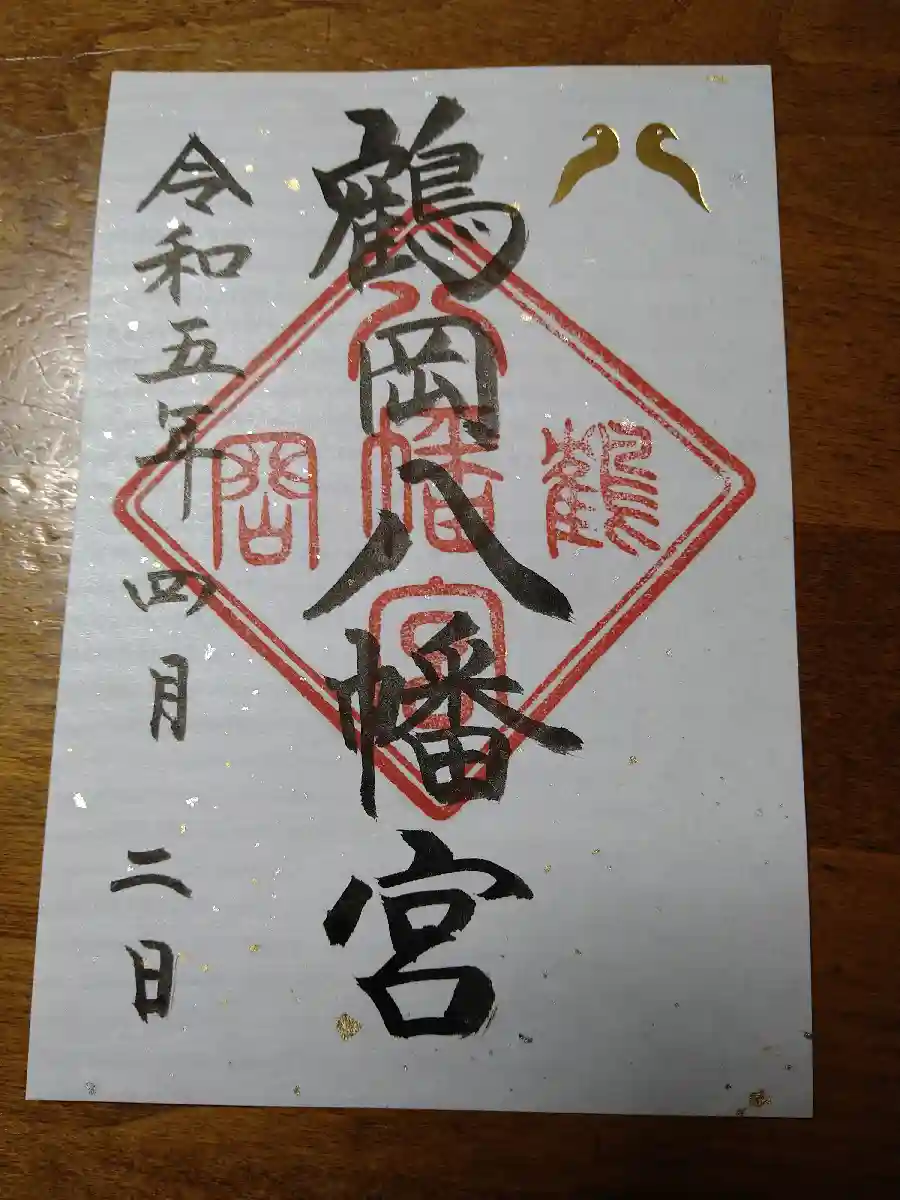 鶴岡八幡宮
鶴
八幡宮
岡
令和五年四月二日